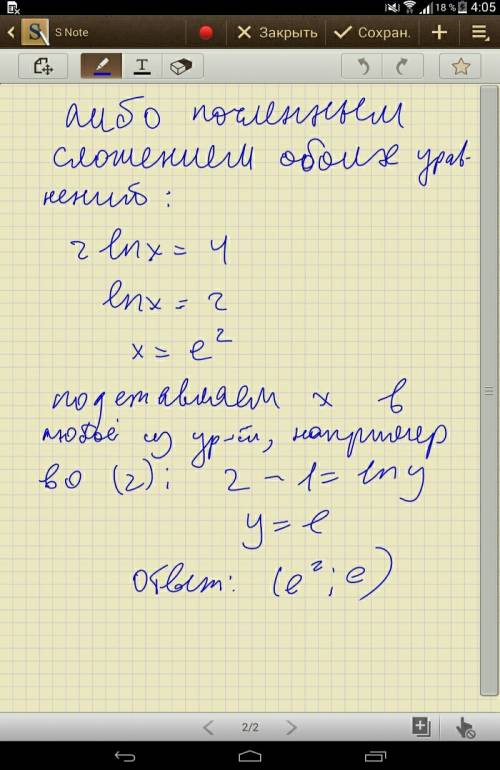 18 % 4:05
S Note
Закрыть
Сохран.
либо почленным
сложением обоих урав-
нений:
2 lnx = 4
lnx = 2
x = e²
подставляем x в
любое из ур-ий, например
во (2); 2 - 1 = lny
y = e
ответ: (e²; e)
2/2